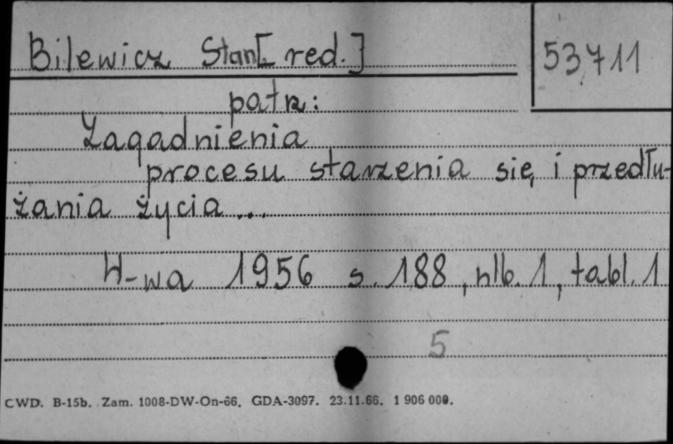 Bilewicz Stan[ red.]
53711
patrz:
Zagadnienia
procesu starzenia się i przedłu-
żania życia ...
W-wa 1956 s. 188, nlb. 1, tabl. 1
5
CWD. B-15b. Zam. 1008-DW-On-66. GDA-3097. 23.11.66. 1 906 000.